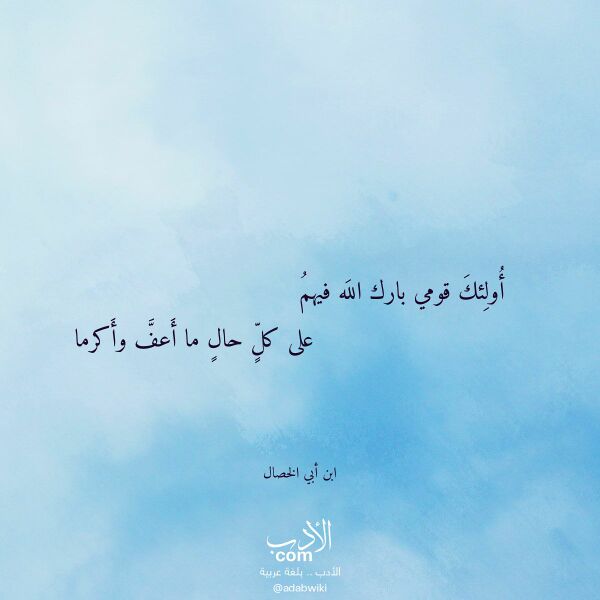 أُولِئكَ قومي بارك اللَه فيهمُ
على كلِّ حالٍ ما أَعفَّ وأَكرما
ابن أبي الخصال
الأدب
com
الأدب .. بلغة عربية
@adabwiki